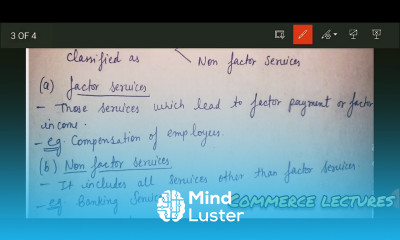 3 OF 4
Classified as
Non Factor Services
(a) factor services
- Those services which lead to factor payment or factor
income.
- eg. Compensation of employees.
(b) Non factor services
- It includes all services other than factor services.
- eg. Banking
Mind
Luster
COMMERCE LECTURES